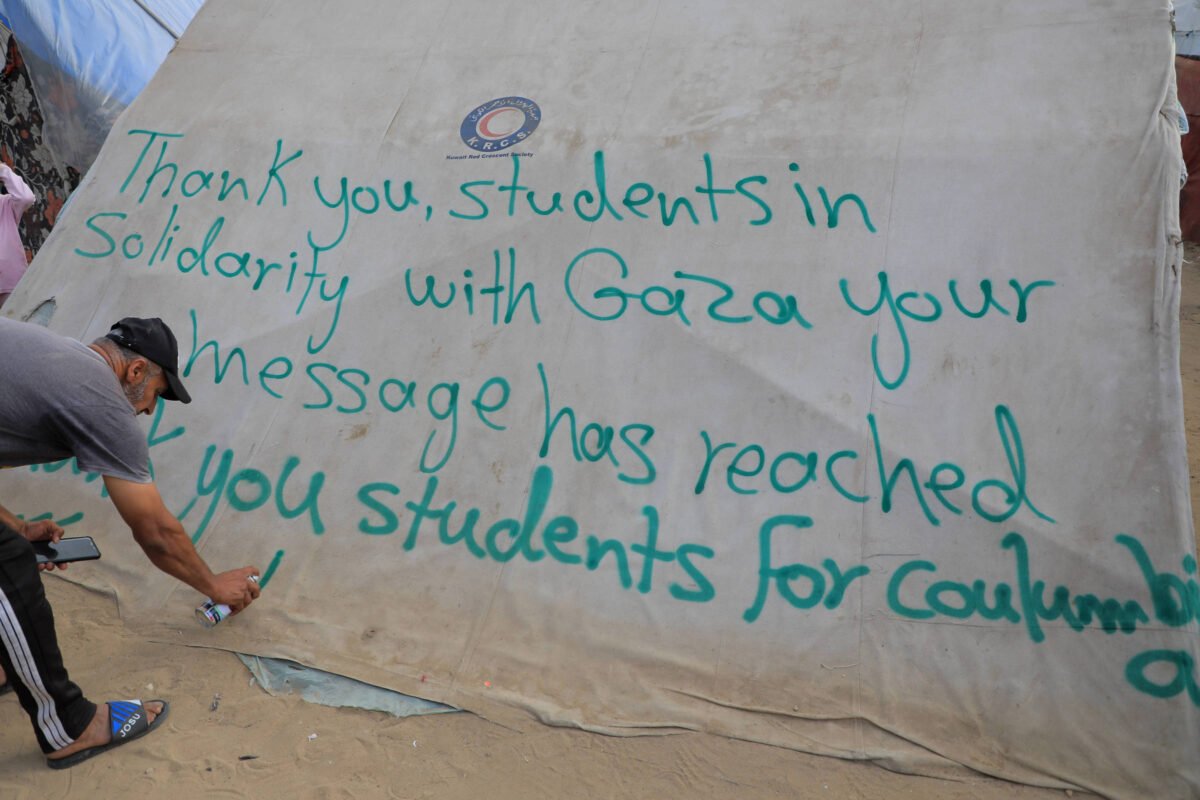 K.R.C.S.
Kuwait Red Crescent Society
Thank you, students in
Solidarity with Gaza your
message has reached
you students for coulumbi
a
JOSU